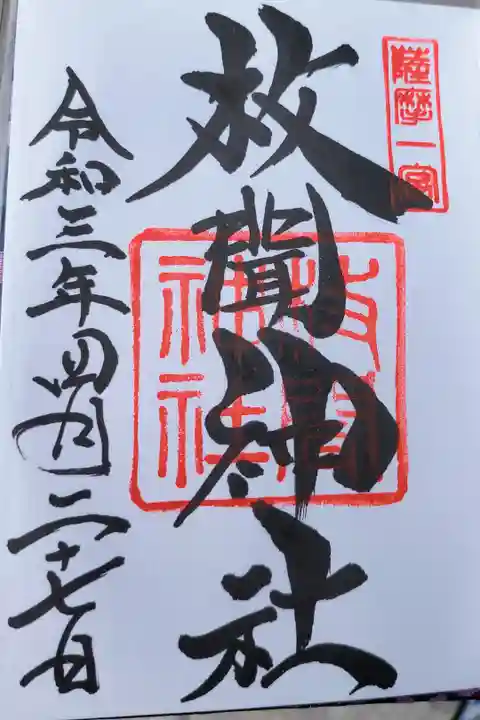 薩摩一宮
枚聞神社
令和三年四月二十七日